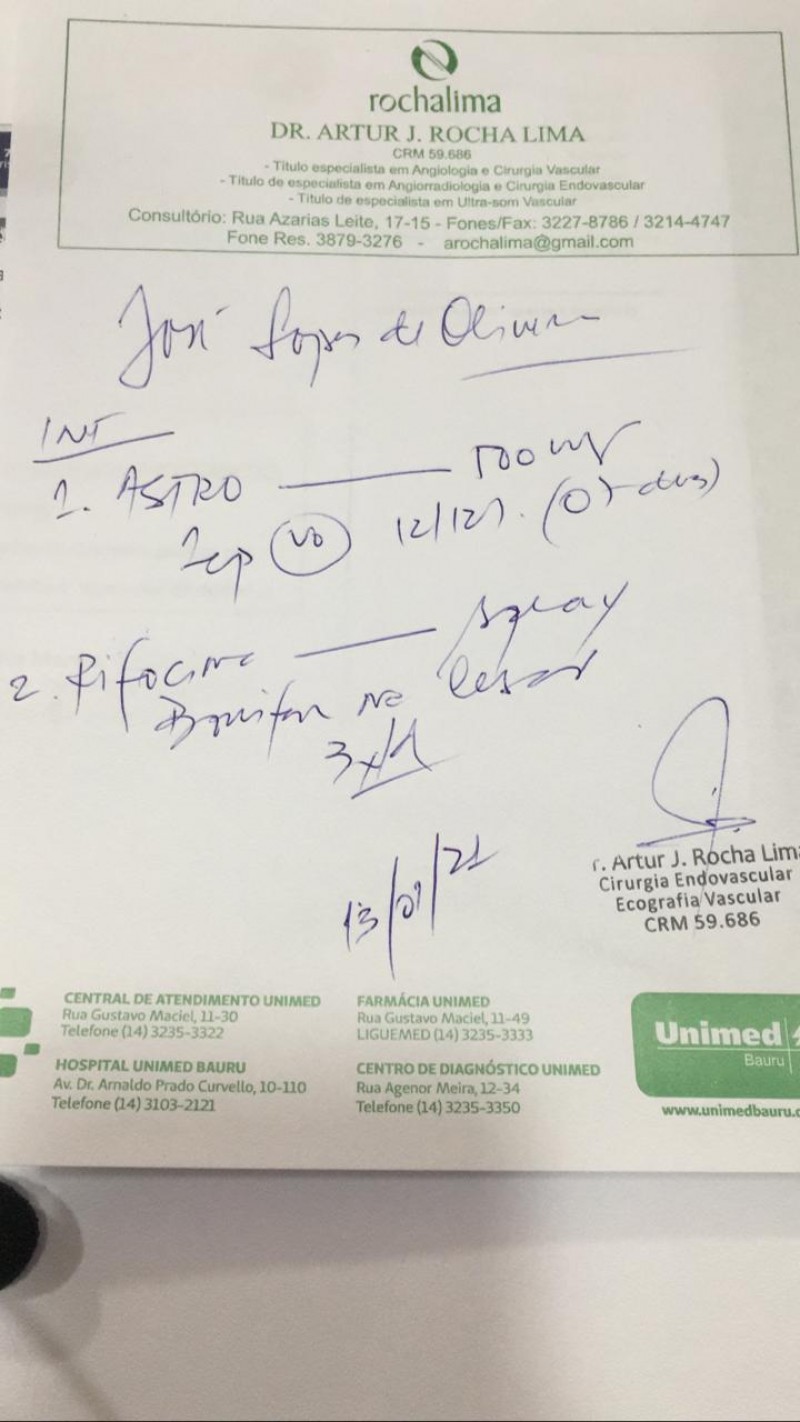 rochalima
DR. ARTUR J. ROCHA LIMA
CRM 59.686
- Título especialista em Angiologia e Cirurgia Vascular
- Título de especialista em Angiorradiologia e Cirurgia Endovascular
- Título de especialista em Ultra-som Vascular
Consultório: Rua Azarias Leite, 17-15 - Fones/Fax: 3227-8786 / 3214-4747
Fone Res. 3879-3276 - arochalima@gmail.com
José Lopes de Oliveira
INT
1. ASTRO 500 mg
1cp VO 12/12h. (05 dias)
2. Rifocina spray
na lesão
3x/d
13/01/21
r. Artur J. Rocha Lima
Cirurgia Endovascular
Ecografia Vascular
CRM 59.686
CENTRAL DE ATENDIMENTO UNIMED
Rua Gustavo Maciel, 11-30
Telefone (14) 3235-3322
FARMÁCIA UNIMED
Rua Gustavo Maciel, 11-49
LIGUEMED (14) 3235-3333
HOSPITAL UNIMED BAURU
Av. Dr. Arnaldo Prado Curvello, 10-110
Telefone (14) 3103-2121
CENTRO DE DIAGNÓSTICO UNIMED
Rua Agenor Meira, 12-34
Telefone (14) 3235-3350
Unimed
Bauru
www.unimedbauru.c